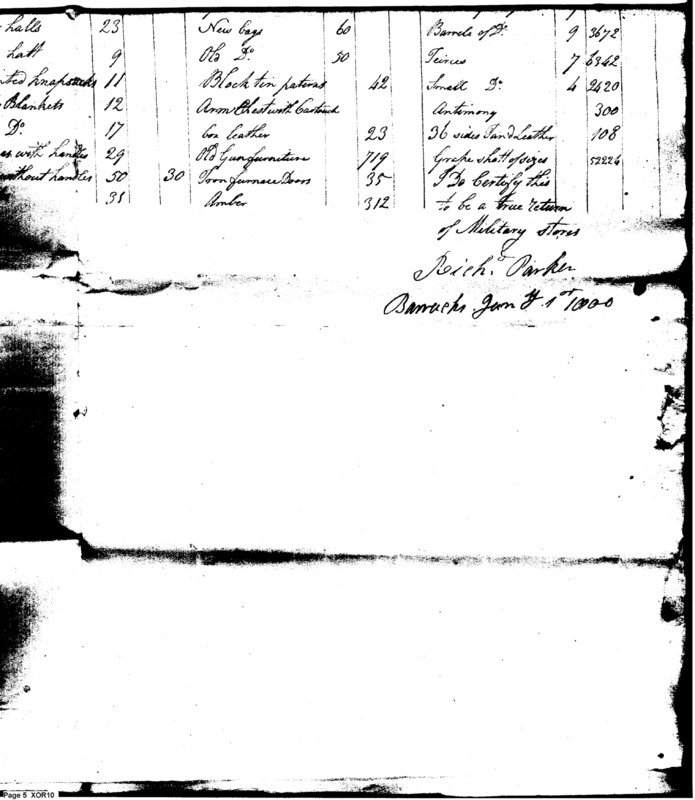 halls 23 New bags 60 Barrels of Do. 9 3672
hatt 9 Old Do. 50 Teirces 7 6342
knapsacks 11 Block tin paterns 42 Small Do. 4 2420
Blankets 12 Arm Chest with Cartouch Antimony 300
Do. 17 box leather 23 36 sides Tan'd Leather 108
with handles 29 Old Gun furneture 719 Grape shott of sizes 52226
without handles 50 30 Iron furnace Doors 35 I Do Certify this
31 Amber 312 to be a true return
of Military stores
Richd. Parker
Barracks Jany 1st 1800
Page 5 XOR10